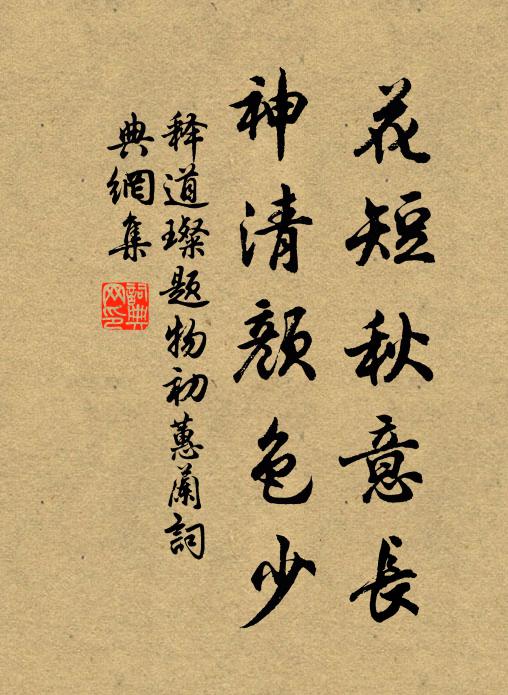 花短秋意長
神清顏色少
释道璨题物初蕙蘭詞
典網集
詞典网印